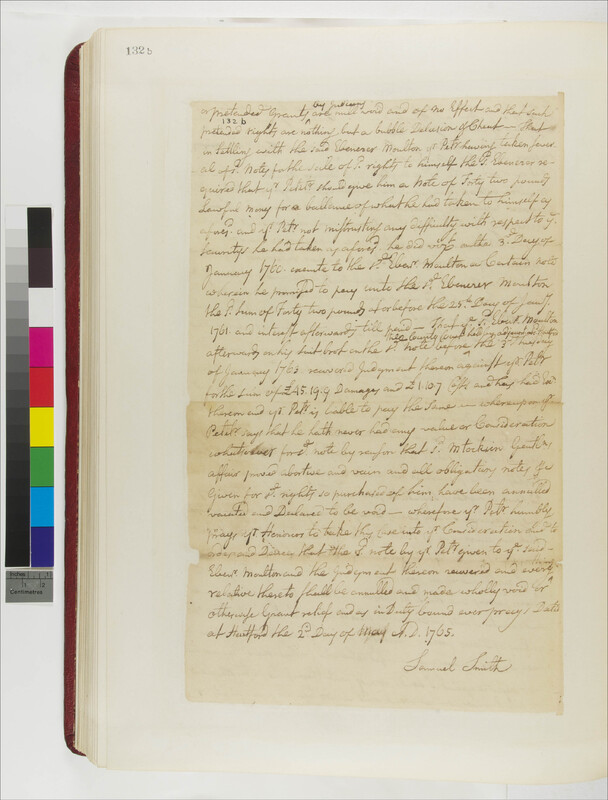 132 b
by Judicious
or pretended Grants are meer void and of no Effect and that such
132 b
pretended rights are nothing but a bubble Delusion & Cheat — That
in settling with the said Ebenezer Moulton yr Petr having taken sever
al of sd Notes for the sale of sd rights to himself the sd Ebenezer re-
quired that yr Petetr should give him a Note of Forty two pounds
Lawful money for a ballance of what he had taken to himself as
aforesd and yr Petr not mistrusting any Difficulty with respect to ye
Securitys he had taken as aforesd he did on the 3d Day of
January 1760 execute to the sd Ebenr Moulton a Certain note
wherein he promised to pay unto the sd Ebenezer Moulton
the sd Sum of Forty two pounds on or before the 25th Day of Janry
1761 and interest afterwards till paid — That ye sd Ebenr Moulton
the County Court held by adjournmt at Hartford
afterwards on his suit brot on the sd note before
of January 1763 recovered Judgment thereon against yr Petr
for the sum of £45.19.9 Damages and £1.10.7 Cost and hath had Exn
thereon and yr Petr is liable to pay the Same — whereupon yr
Petetr says that he hath never had any value or Consideration
whatsoever for sd note by reason that sd Stockein Grants
affair proved abortive and vacan and all obligations, notes, &c
Given for sd rights so purchased of him have been annulled
vacated and Declared to be void — wherefore yr Petr humbly
Prays yr Honours to take this Case into yr Consideration and to
order and Direct that the sd note by yr Petr given to ye said
Ebenr Moulton and the Judgment thereon recovered and every
relative thereto shall be annulled and made wholly void or
otherwise Grant relief and as in Duty bound ever prays Dated
at Hartford the 2d Day of May A.D. 1765.
Samuel Smith
Inches
Centimetres